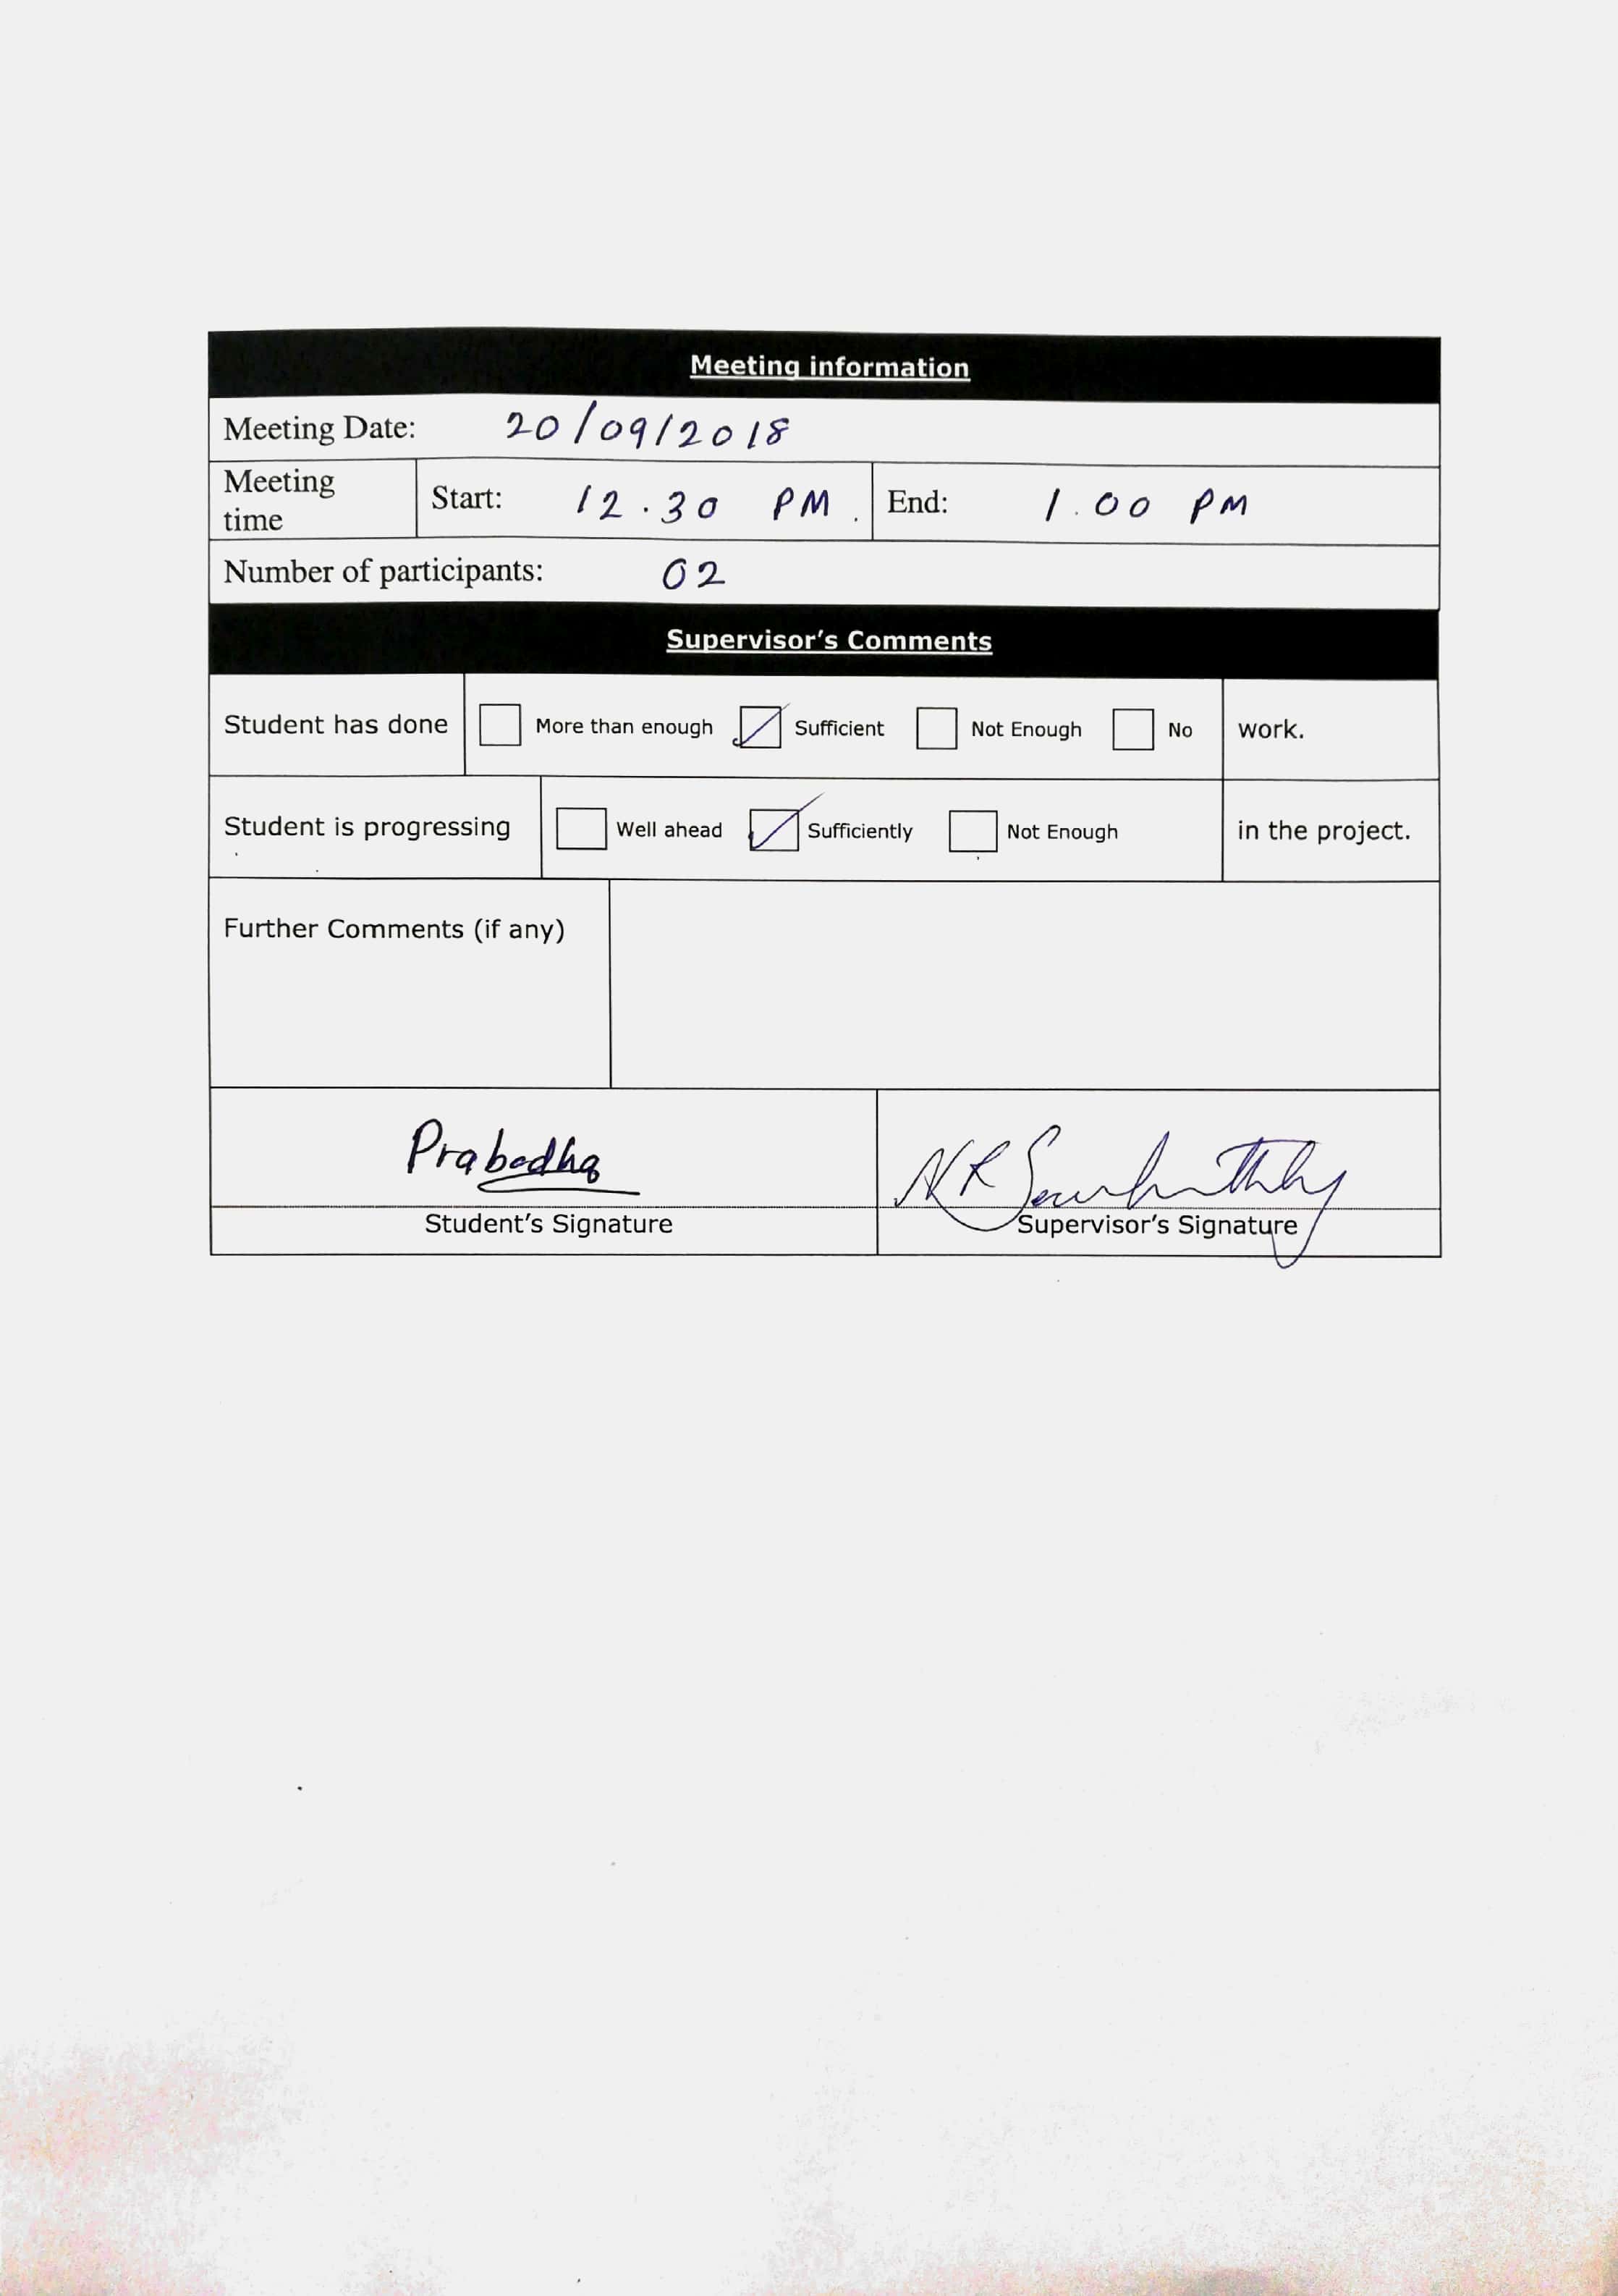 Meeting information
Meeting Date: 20/09/2018
Meeting time Start: 12.30 PM. End: 1.00 PM
Number of participants: 02
Supervisor's Comments
Student has done More than enough Sufficient Not Enough No work.
Student is progressing Well ahead Sufficiently Not Enough in the project.
Further Comments (if any)
Prabodha N R
Student's Signature Supervisor's Signature